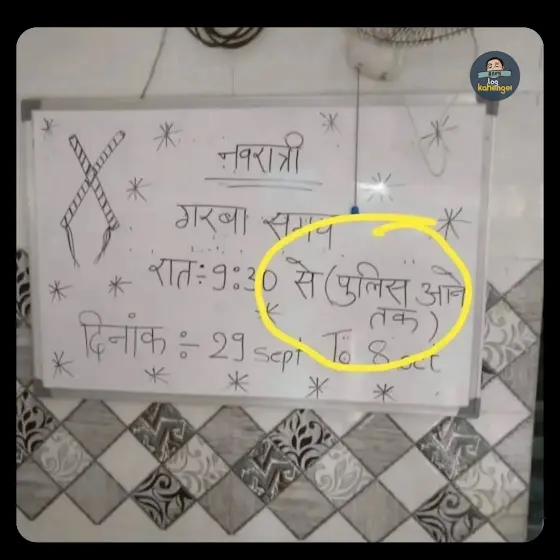 नवरात्री
गरबा समय
रात÷9:30 से (पुलिस आने
तक)
दिनांक ÷ 29 sept To 8 oct
log
kahenge!